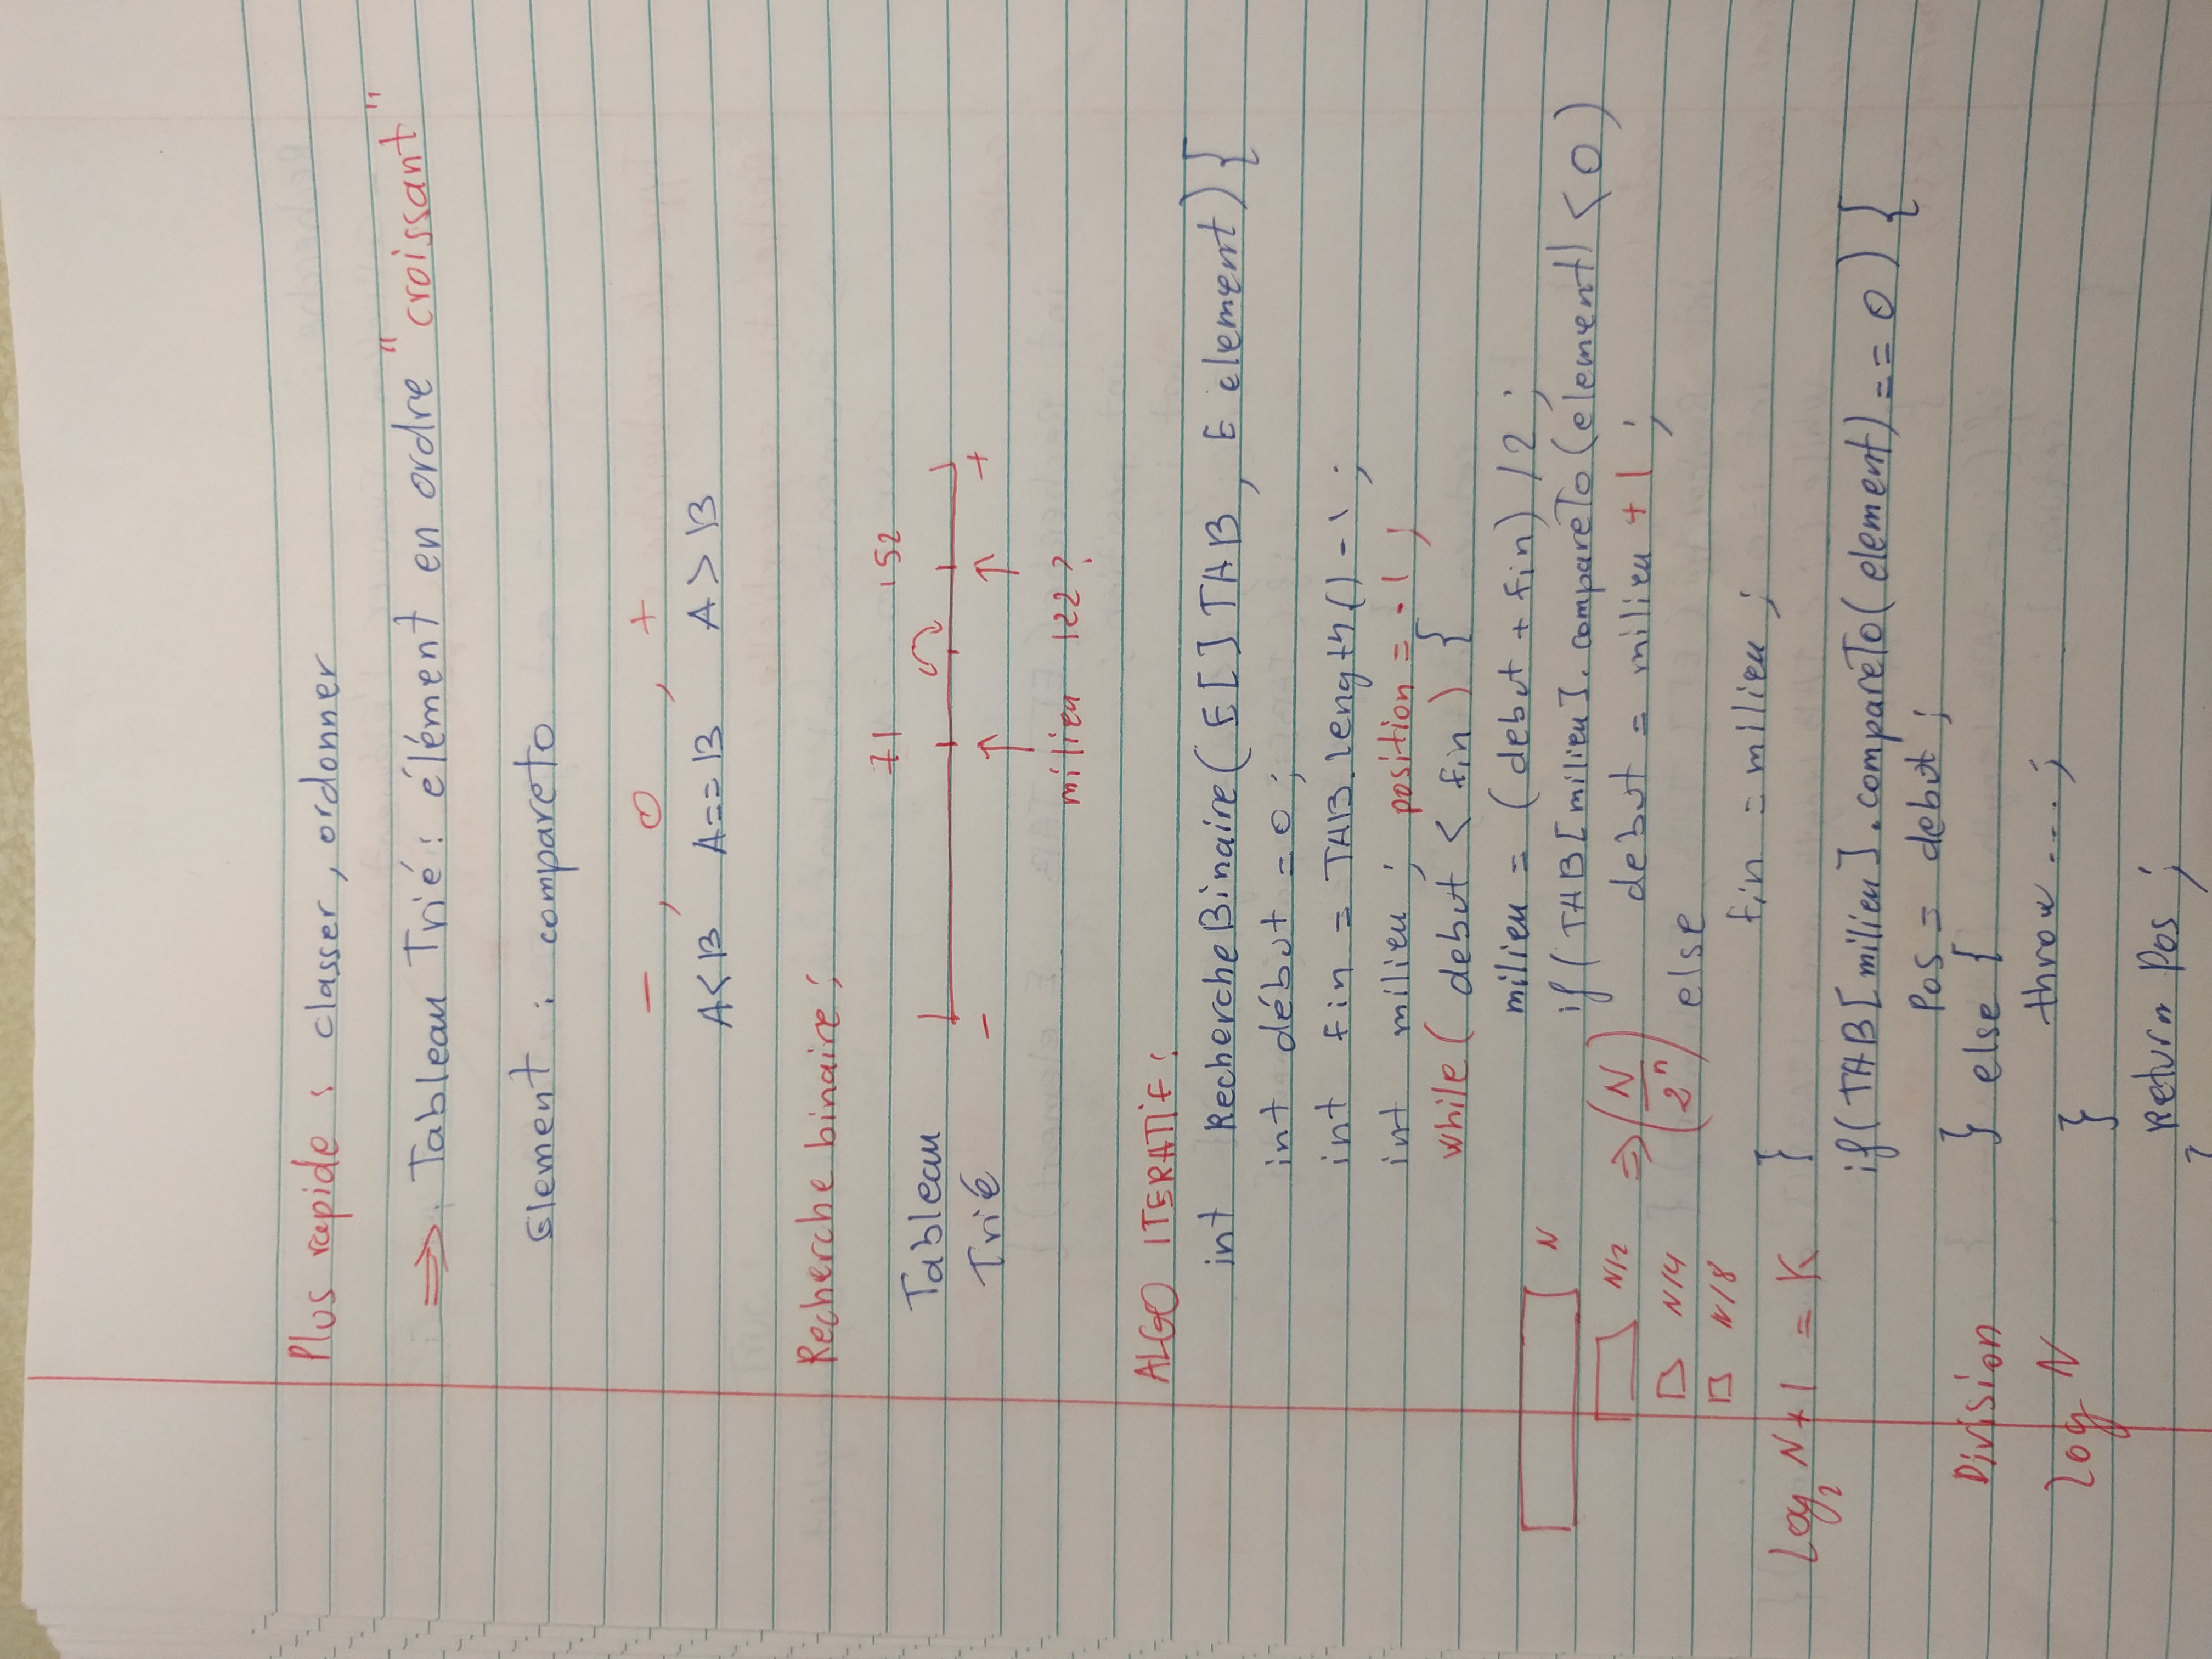 Plus rapide : classer, ordonner
⇒ Tableau Trié : élément en ordre "croissant"
Element : compareto
- , 0 , +
A<B A==B A>B
Recherche binaire :
71 152
Tableau
Trié - +
milieu 122?
ALGO ITERATIF :
int RechercheBinaire( E[] TAB, E element) {
int début = 0 ;
int fin = TAB.length() - 1 ;
int milieu ; position = -1 ;
while ( debut < fin ) {
milieu = (debut + fin) /2 ;
N
if ( TAB[milieu]. compareTo (element) < 0 )
N/2 ⇒ (N/2^n) debut = milieu + 1 ;
N/4 else
N/8
fin = milieu ;
Log₂ N+1 = K }
if ( TAB [milieu] . compareTo ( element) == 0 ) {
Pos = debut ;
Division } else {
throw ... ;
log N }
Return Pos ;
}